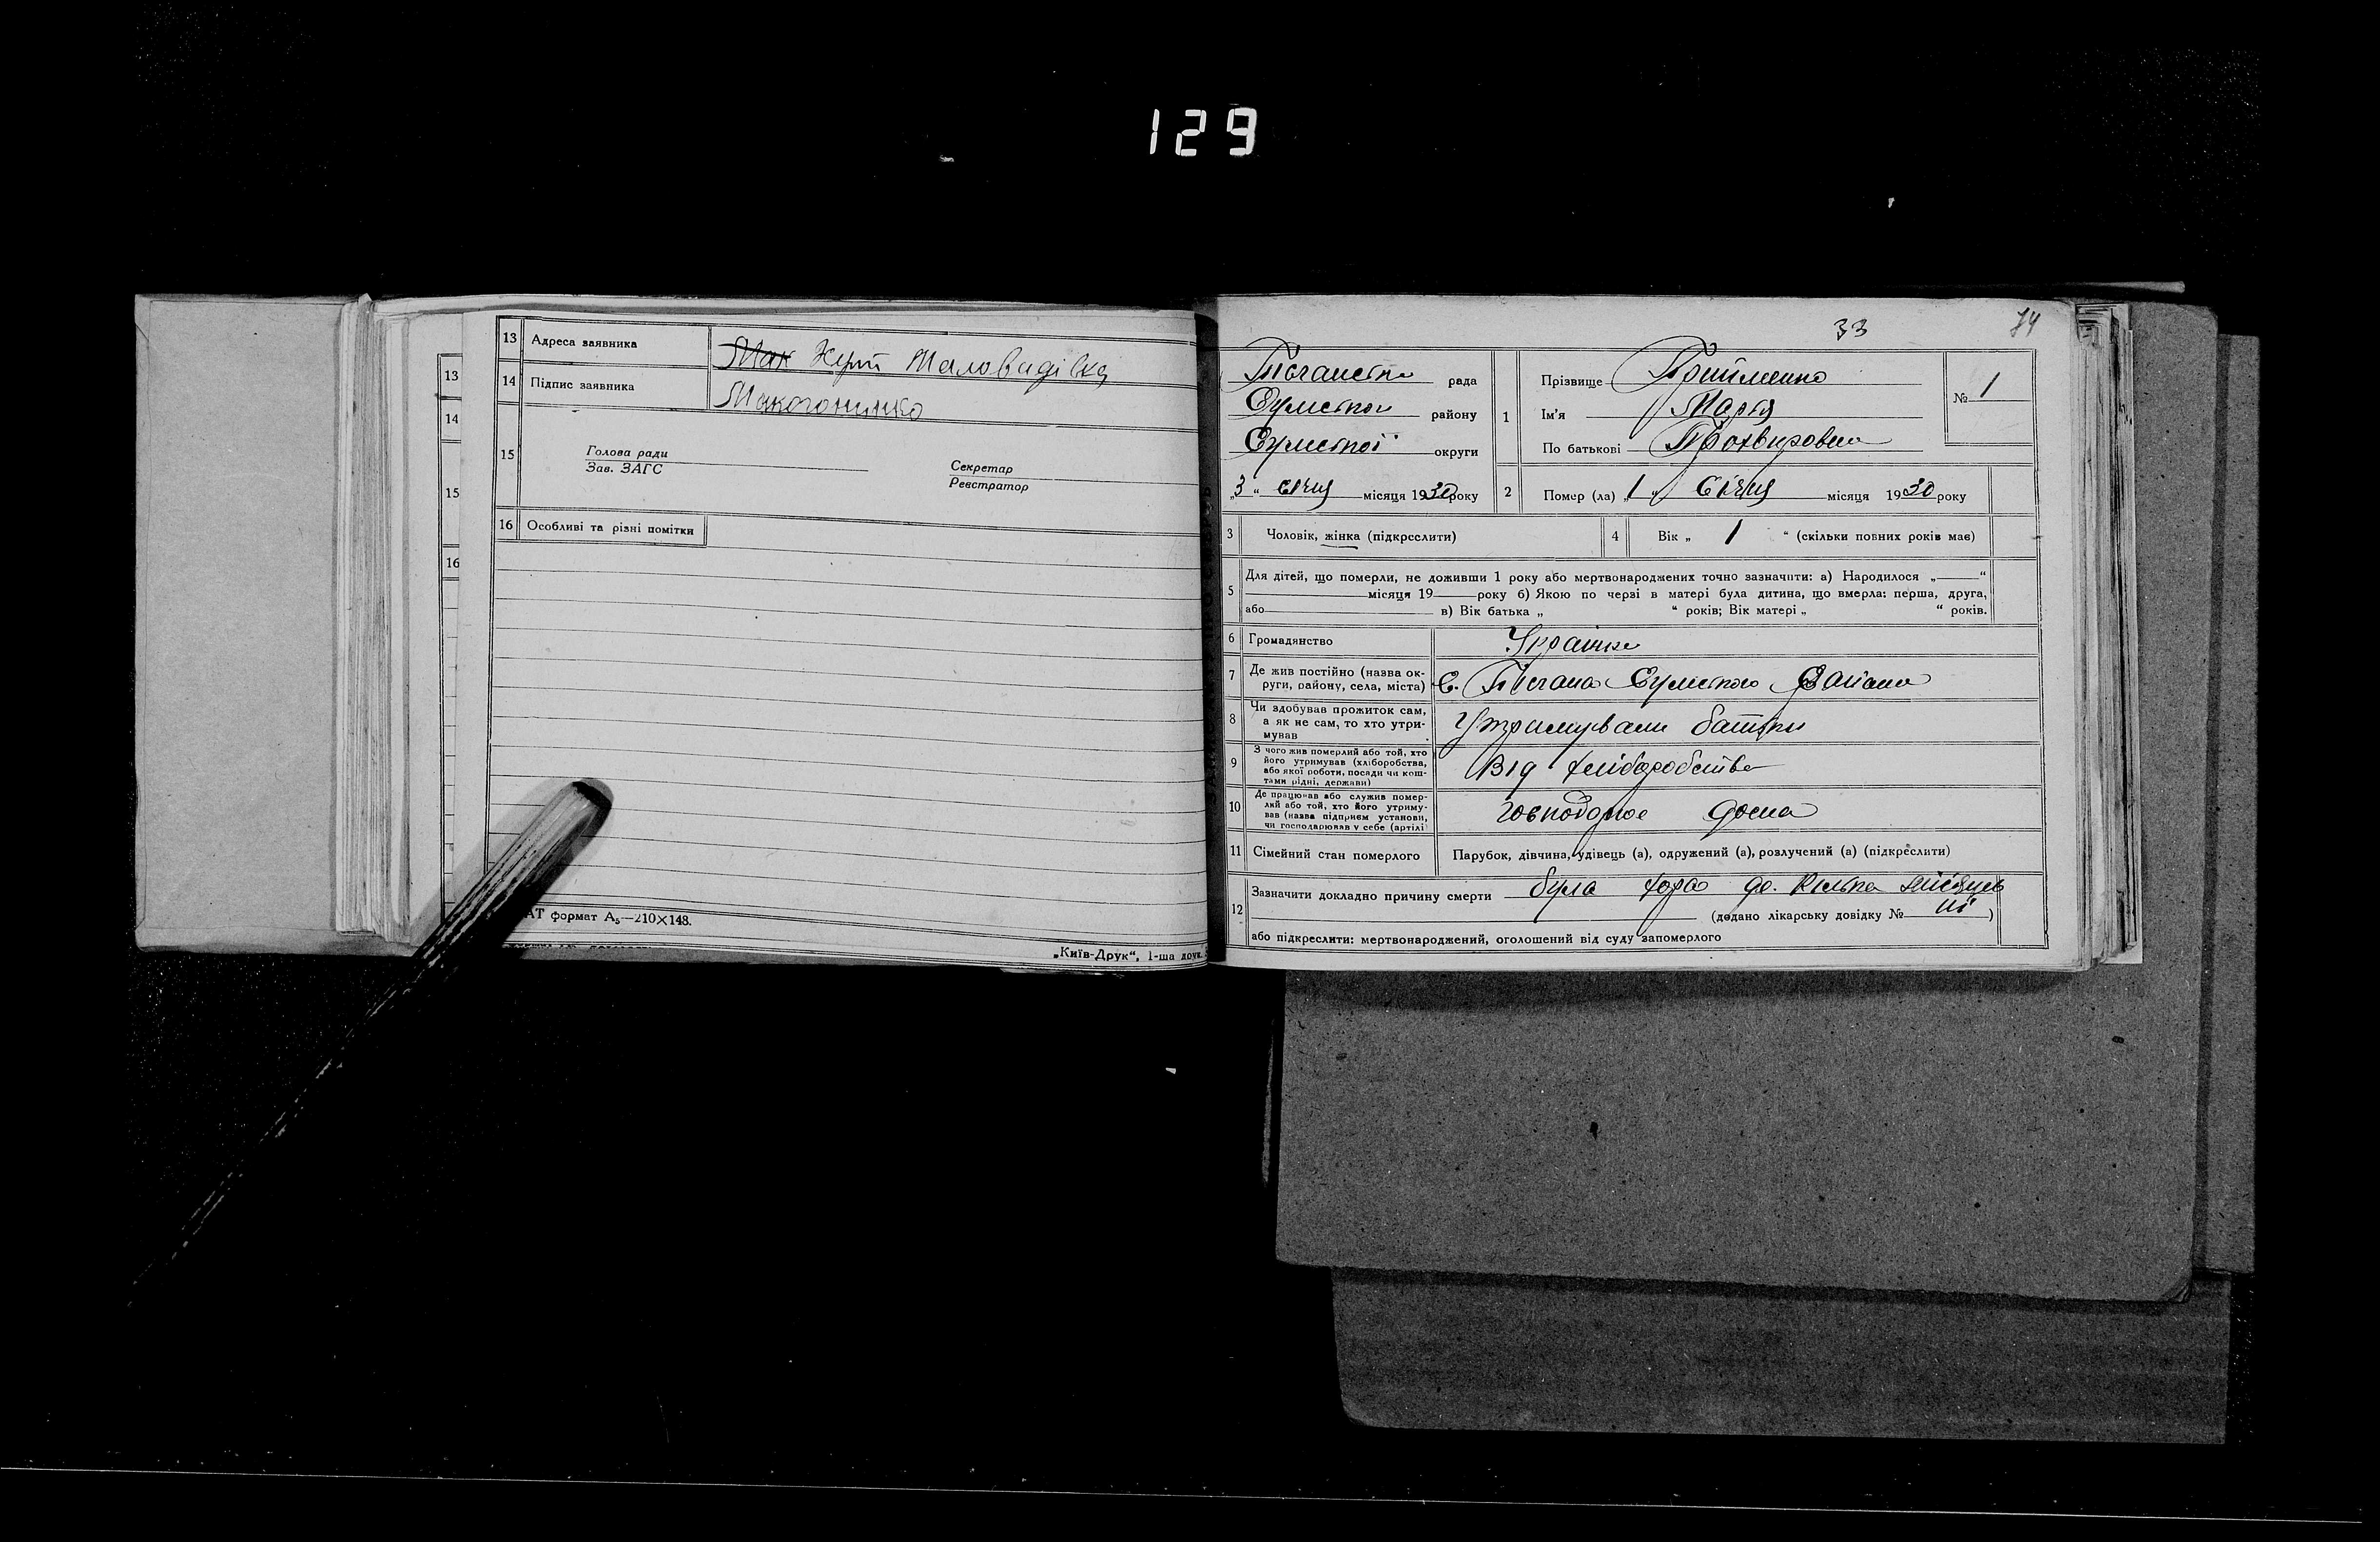 129
13 Адреса заявника Мак Хут Маловидівка
14 Підпис заявника Макогоненко
15 Голова ради
Зав. ЗАГС
Секретар
Реєстратор
16 Особливі та різні помітки
АТ формат А₅—210×148.
„Київ-Друк“, 1-ша друк.
13
14
15
16
33
74
рада
Сумської району
Сумської округи
„3“ січня місяця 1930 року
1 Прізвище Прийменко
Ім'я Марія
По батькові
№ 1
2 Помер (ла) „1“ Січня місяця 1930 року
3 Чоловік, жінка (підкреслити)
4 Вік „ 1 “ (скільки повних років має)
5 Для дітей, що померли, не доживши 1 року або мертвонароджених точно зазначити: а) Народилося „ “
місяця 19 року б) Якою по черзі в матері була дитина, що вмерла: перша, друга,
або в) Вік батька „ “ років; Вік матері „ “ років.
6 Громадянство Українка
7 Де жив постійно (назва ок-
руги, району, села, міста) С. Сумского Району
8 Чи здобував прожиток сам,
а як не сам, то хто утри-
мував Утримували батьки
9 З чого жив померлий або той, хто
його утримував (хліборобства,
або якої роботи, посади чи кош-
тами рідні, держави) Від хліборобства
10 Де працював або служив помер-
лий або той, хто його утриму-
вав (назва підприєм установи,
чи господарював у себе (артілі) дома
11 Сімейний стан померлого Парубок, дівчина, удівець (а), одружений (а), розлучений (а) (підкреслити)
12 Зазначити докладно причину смерти була хора кілька місяців
(додано лікарську довідку № )
або підкреслити: мертвонароджений, оголошений від суду запомерлого